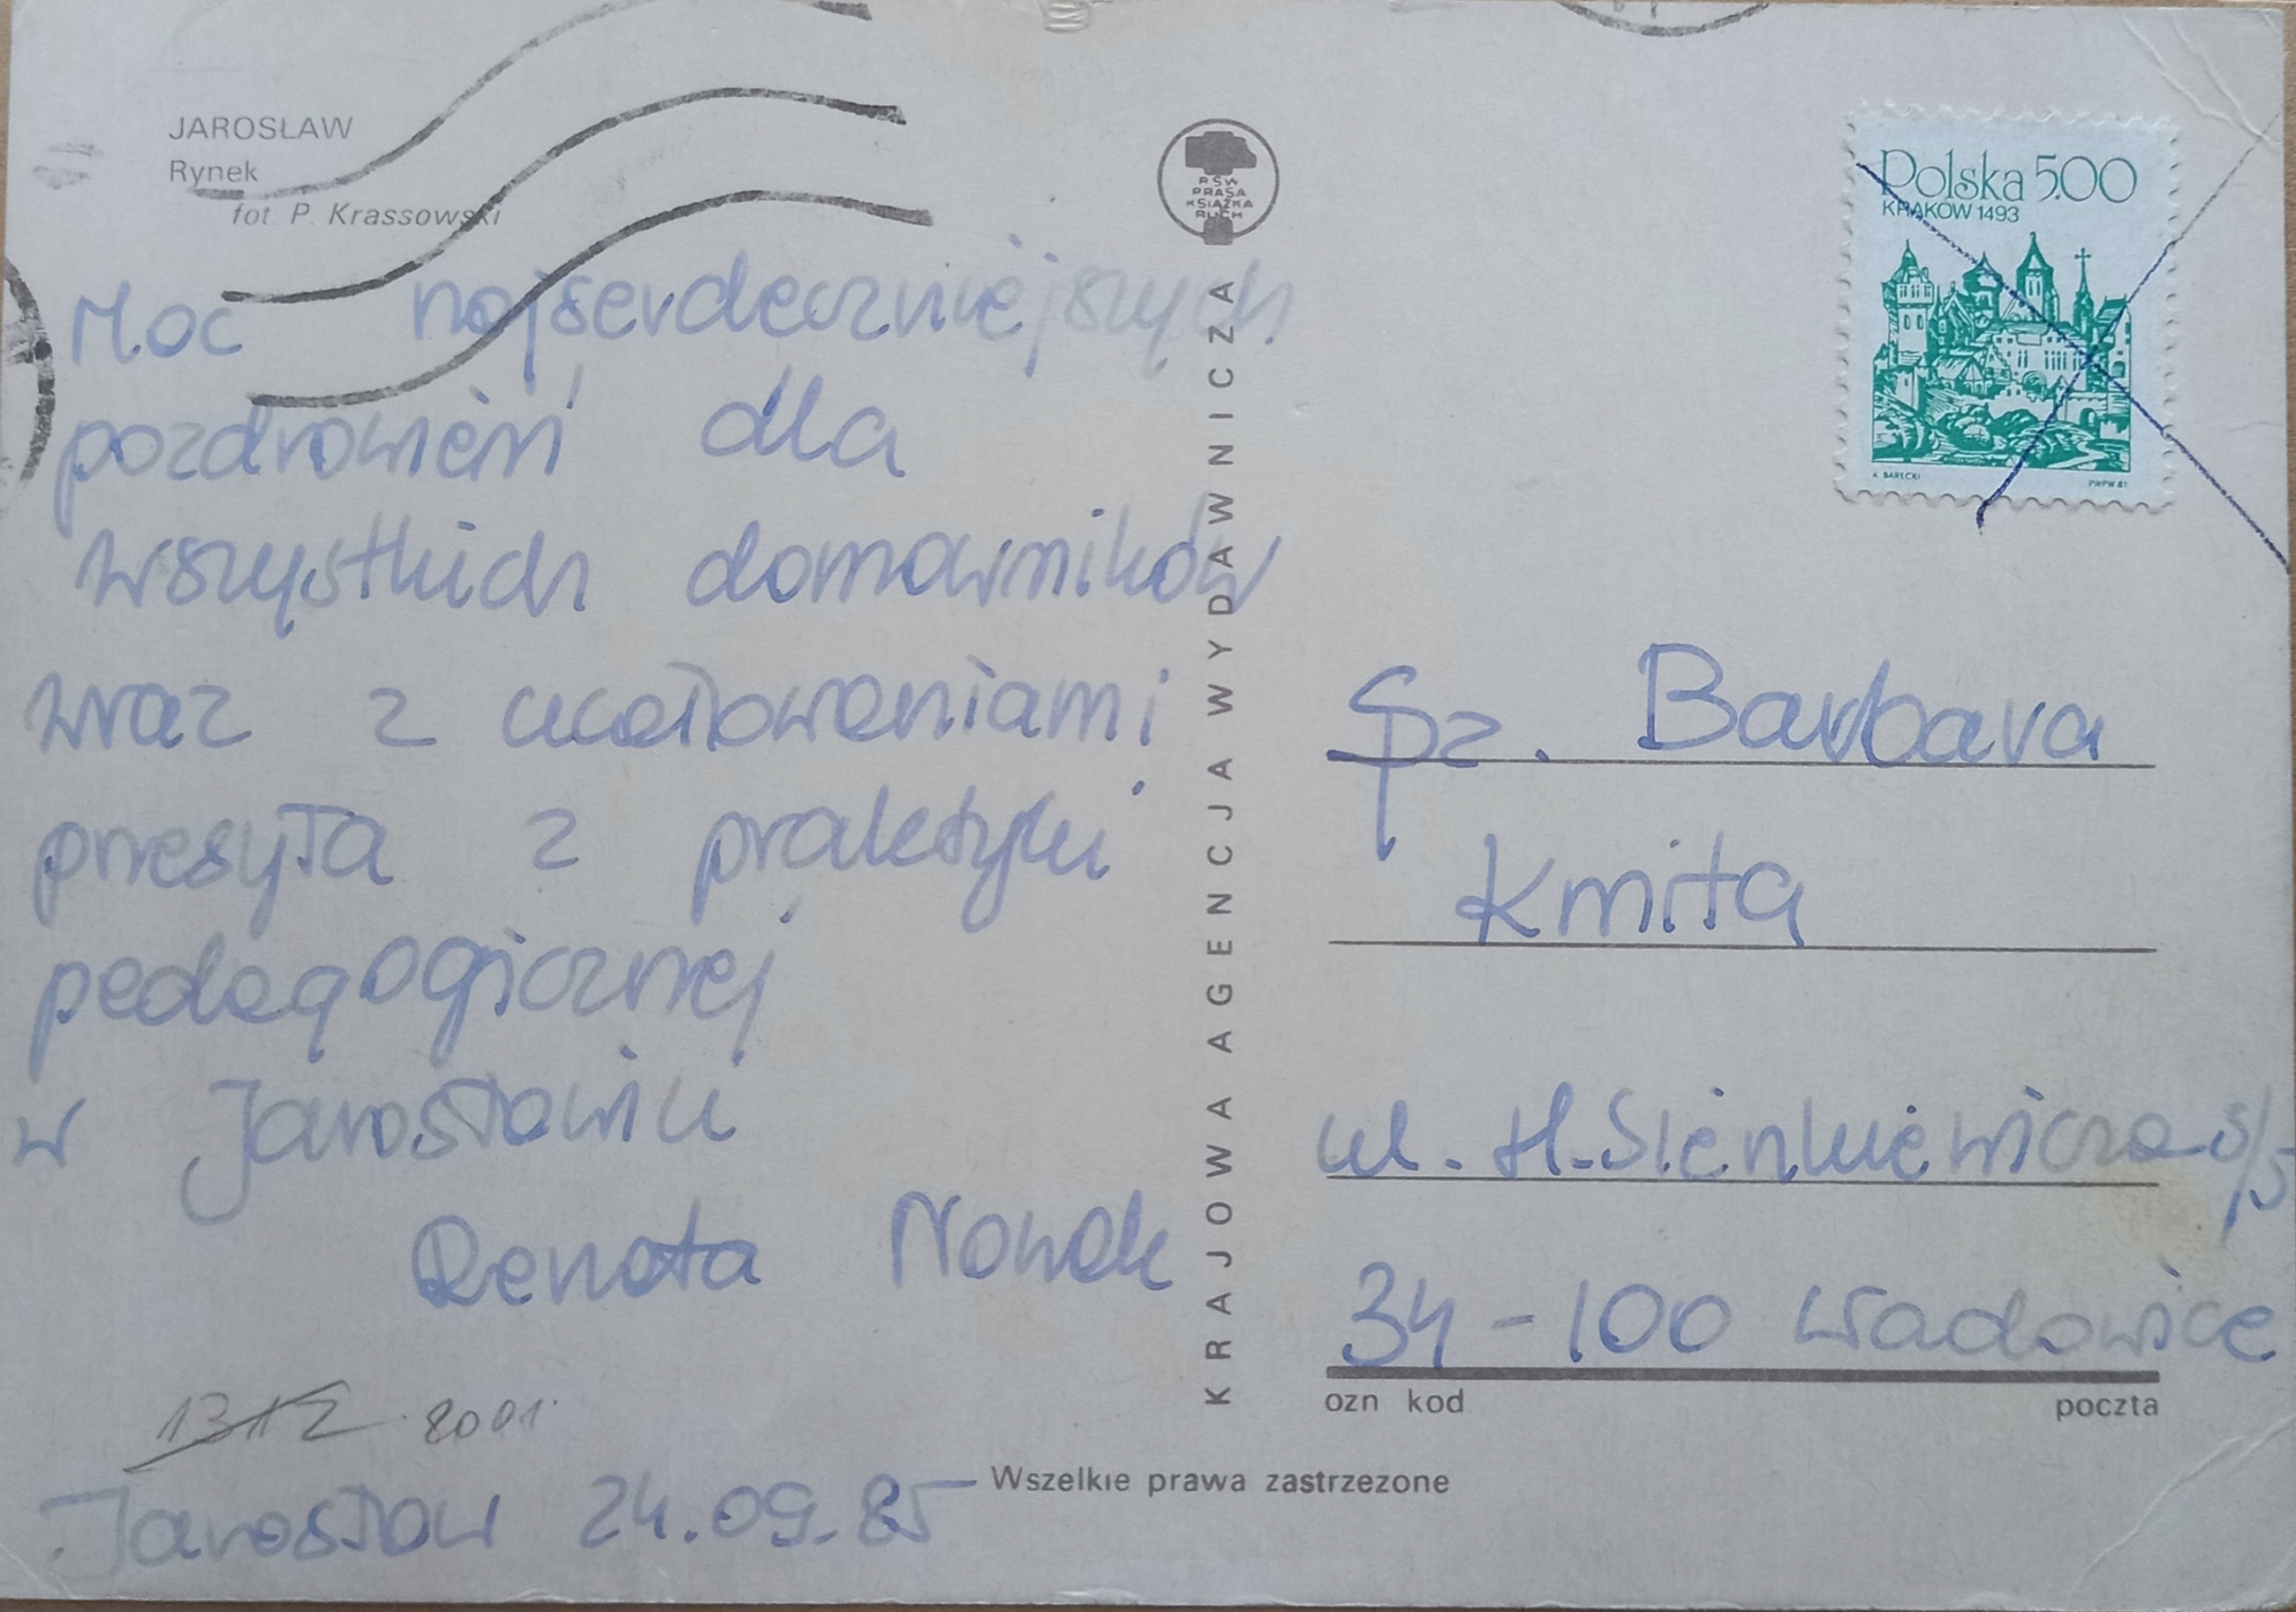 JAROSŁAW
Rynek
fot. P. Krassowski
Moc najserdeczniejszych
pozdrowień dla
wszystkich domowników
wraz z ucałowaniami
przesyła z praktyki
pedagogicznej
w Jarosławiu
Renata Nowak
8001.
Jarosław 24.09.85
RSW
PRASA
KSIĄŻKA
RUCH
KRAJOWA AGENCJA WYDAWNICZA
Wszelkie prawa zastrzeżone
Polska 5.00
KRAKÓW 1493
A. BARECKI PWPW 81
Sz. Barbara
Kmita
ul. H. Sienkiewicza 5/5
34-100 Wadowice
ozn kod poczta